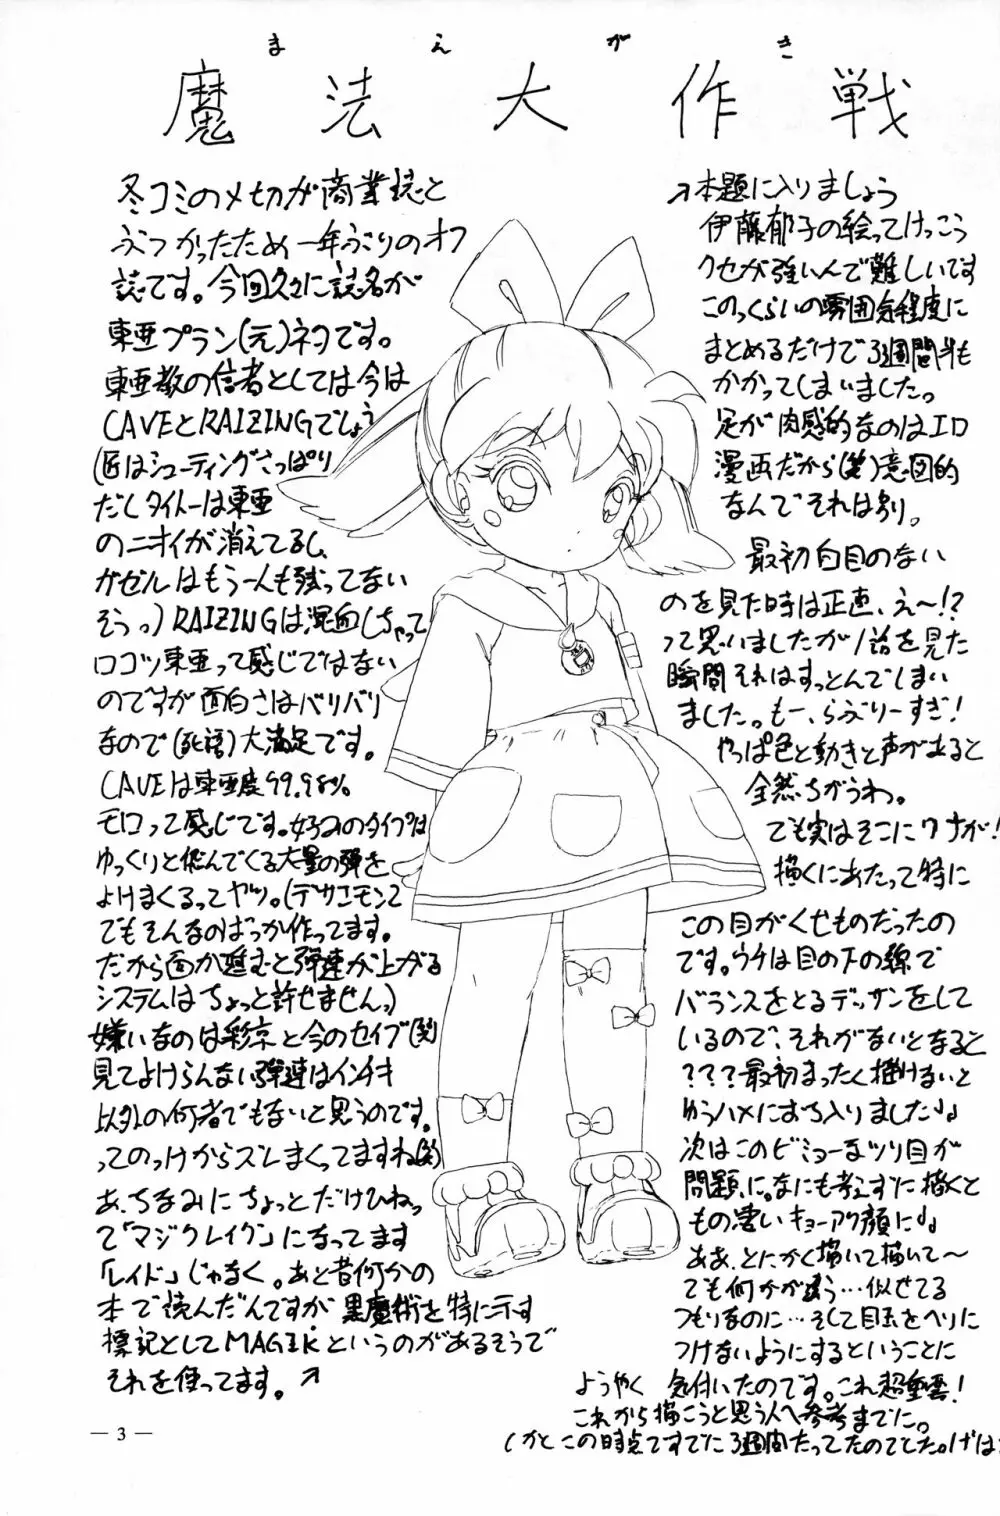 まえがき
魔法大作戦
冬コミの〆切が商業誌と
ぶつかったため一年ぶりのオフ
誌です。今回久々に誌名が
東亜プラン(元)ネタです。
東亜教の信者としては今は
CAVEとRAIZINGでしょう
(匠はシューティングさっぱり
だしタイトーは東亜
のニオイが消えてるし、
ガゼルはもう一人も残ってない
そうっ)RAIZINGは混血しちゃって
ロコツ東亜って感じではない
のですが面白さはバリバリ
なので(死語)大満足です。
CAVEは東亜度99.98%
モロって感じです。好みのタイプは
ゆっくりと飛んでくる大量の弾を
よけまくるってヤツ。(デザエモンで
でもそんなのばっか作ってます。
だから面が進むと弾速が上がる
システムはちょっと許せませんっ)
嫌いなのは彩京と今のセイブ
見てよけらんない弾速はインチキ
以外の何者でもないと思うのです。
ってのっけからズレまくってますね(笑)
あ、ちなみにちょっとだけひねっ
て「マジクレイグ」になってます
「レイド」じゃなく。あと昔何かの
本で読んだんですが黒魔術を特に示す
標記としてMAGIKというのがあるそうで
それを使ってます。↗
↗本題に入りましょう
伊藤郁子の絵ってけっこう
クセが強いんで難しいです
このっくらいの雰囲気程度に
まとめるだけで3週間半も
かかってしまいました。
足が肉感的なのはエロ
漫画だから(笑)意図的
なんでそれは別。
最初白目のない
のを見た時は正直、え〜!?
って思いましたが1話を見た
瞬間それはすっとんでしまい
ました。もー、らぶりーすぎ!
やっぱ色と動きと声があると
全然ちがうわ。
でも実はそこにワナが!
描くにあたって特に
この目がくせものだったの
です。ウチは目の下の線で
バランスをとるデッサンをして
いるので、それがないとなると
???最初まったく描けないと
ゆうハメにおち入りました♩♩
次はこのビミョーなツリ目が
問題に。なにも考えずに描くと
もの凄いキョーアク顔に♩♩
ああ、とにかく描いて描いて〜
でも何かが違う…似せてる
つもりなのに…そして目玉をヘリに
つけないようにするということに
ようやく気付いたのです。これ超重要!
これから描こうと思う人へ参考までに。
(かとこの時点ですでに3週間たってたのでした。げは
— 3 —